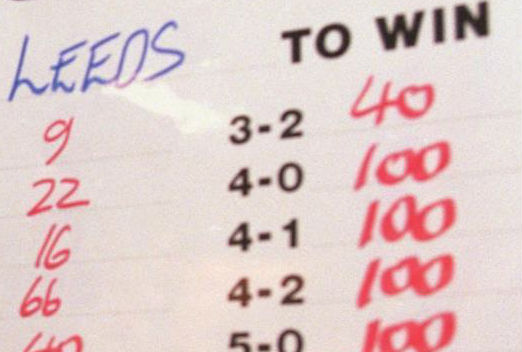 LEEDS TO WIN
9 3-2 40
22 4-0 100
16 4-1 100
66 4-2 100
40 5-0 100